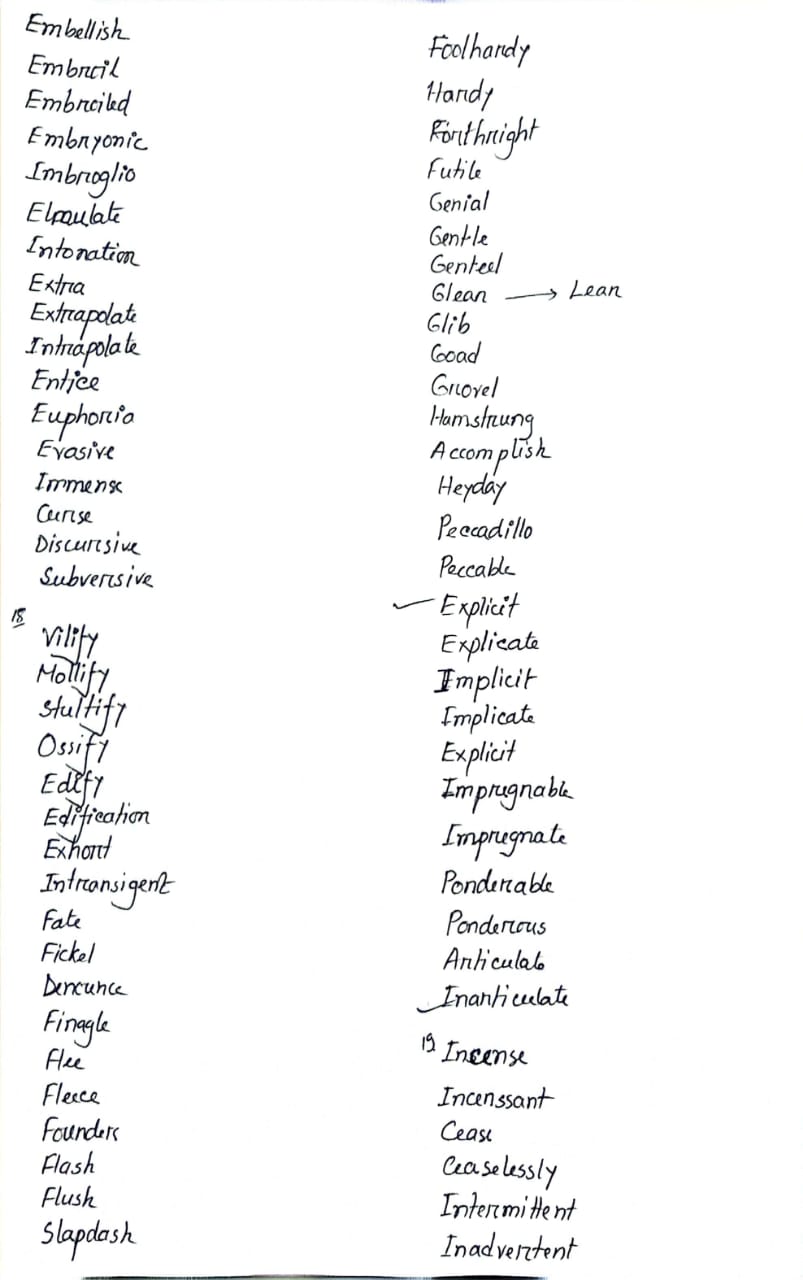 Embellish
Embroil
Embroiled
Embryonic
Imbroglio
Elpaulate
Intonation
Extra
Extrapolate
Intrapolate
Entice
Euphoria
Evasive
Immense
Curse
Discursive
Subversive
18
Vilify
Mollify
Stultify
Ossify
Edify
Edification
Exhort
Intransigent
Fate
Fickel
Denounce
Finagle
Flee
Fleece
Founder
Flash
Flush
Slapdash
Foolhardy
Hardy
Forthright
Futile
Genial
Gentle
Genteel
Glean → Lean
Glib
Goad
Grovel
Hamstrung
Accomplish
Heyday
Peccadillo
Peccable
Explicit
Explicate
Implicit
Implicate
Explicit
Imprugnable
Impregnate
Ponderable
Ponderous
Articulate
Inarticulate
19 Incense
Incenssant
Cease
Ceaselessly
Intermittent
Inadvertent